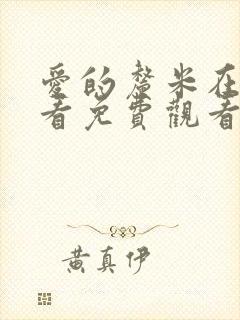 愛的釐米在
看免費觀看
黃真伊